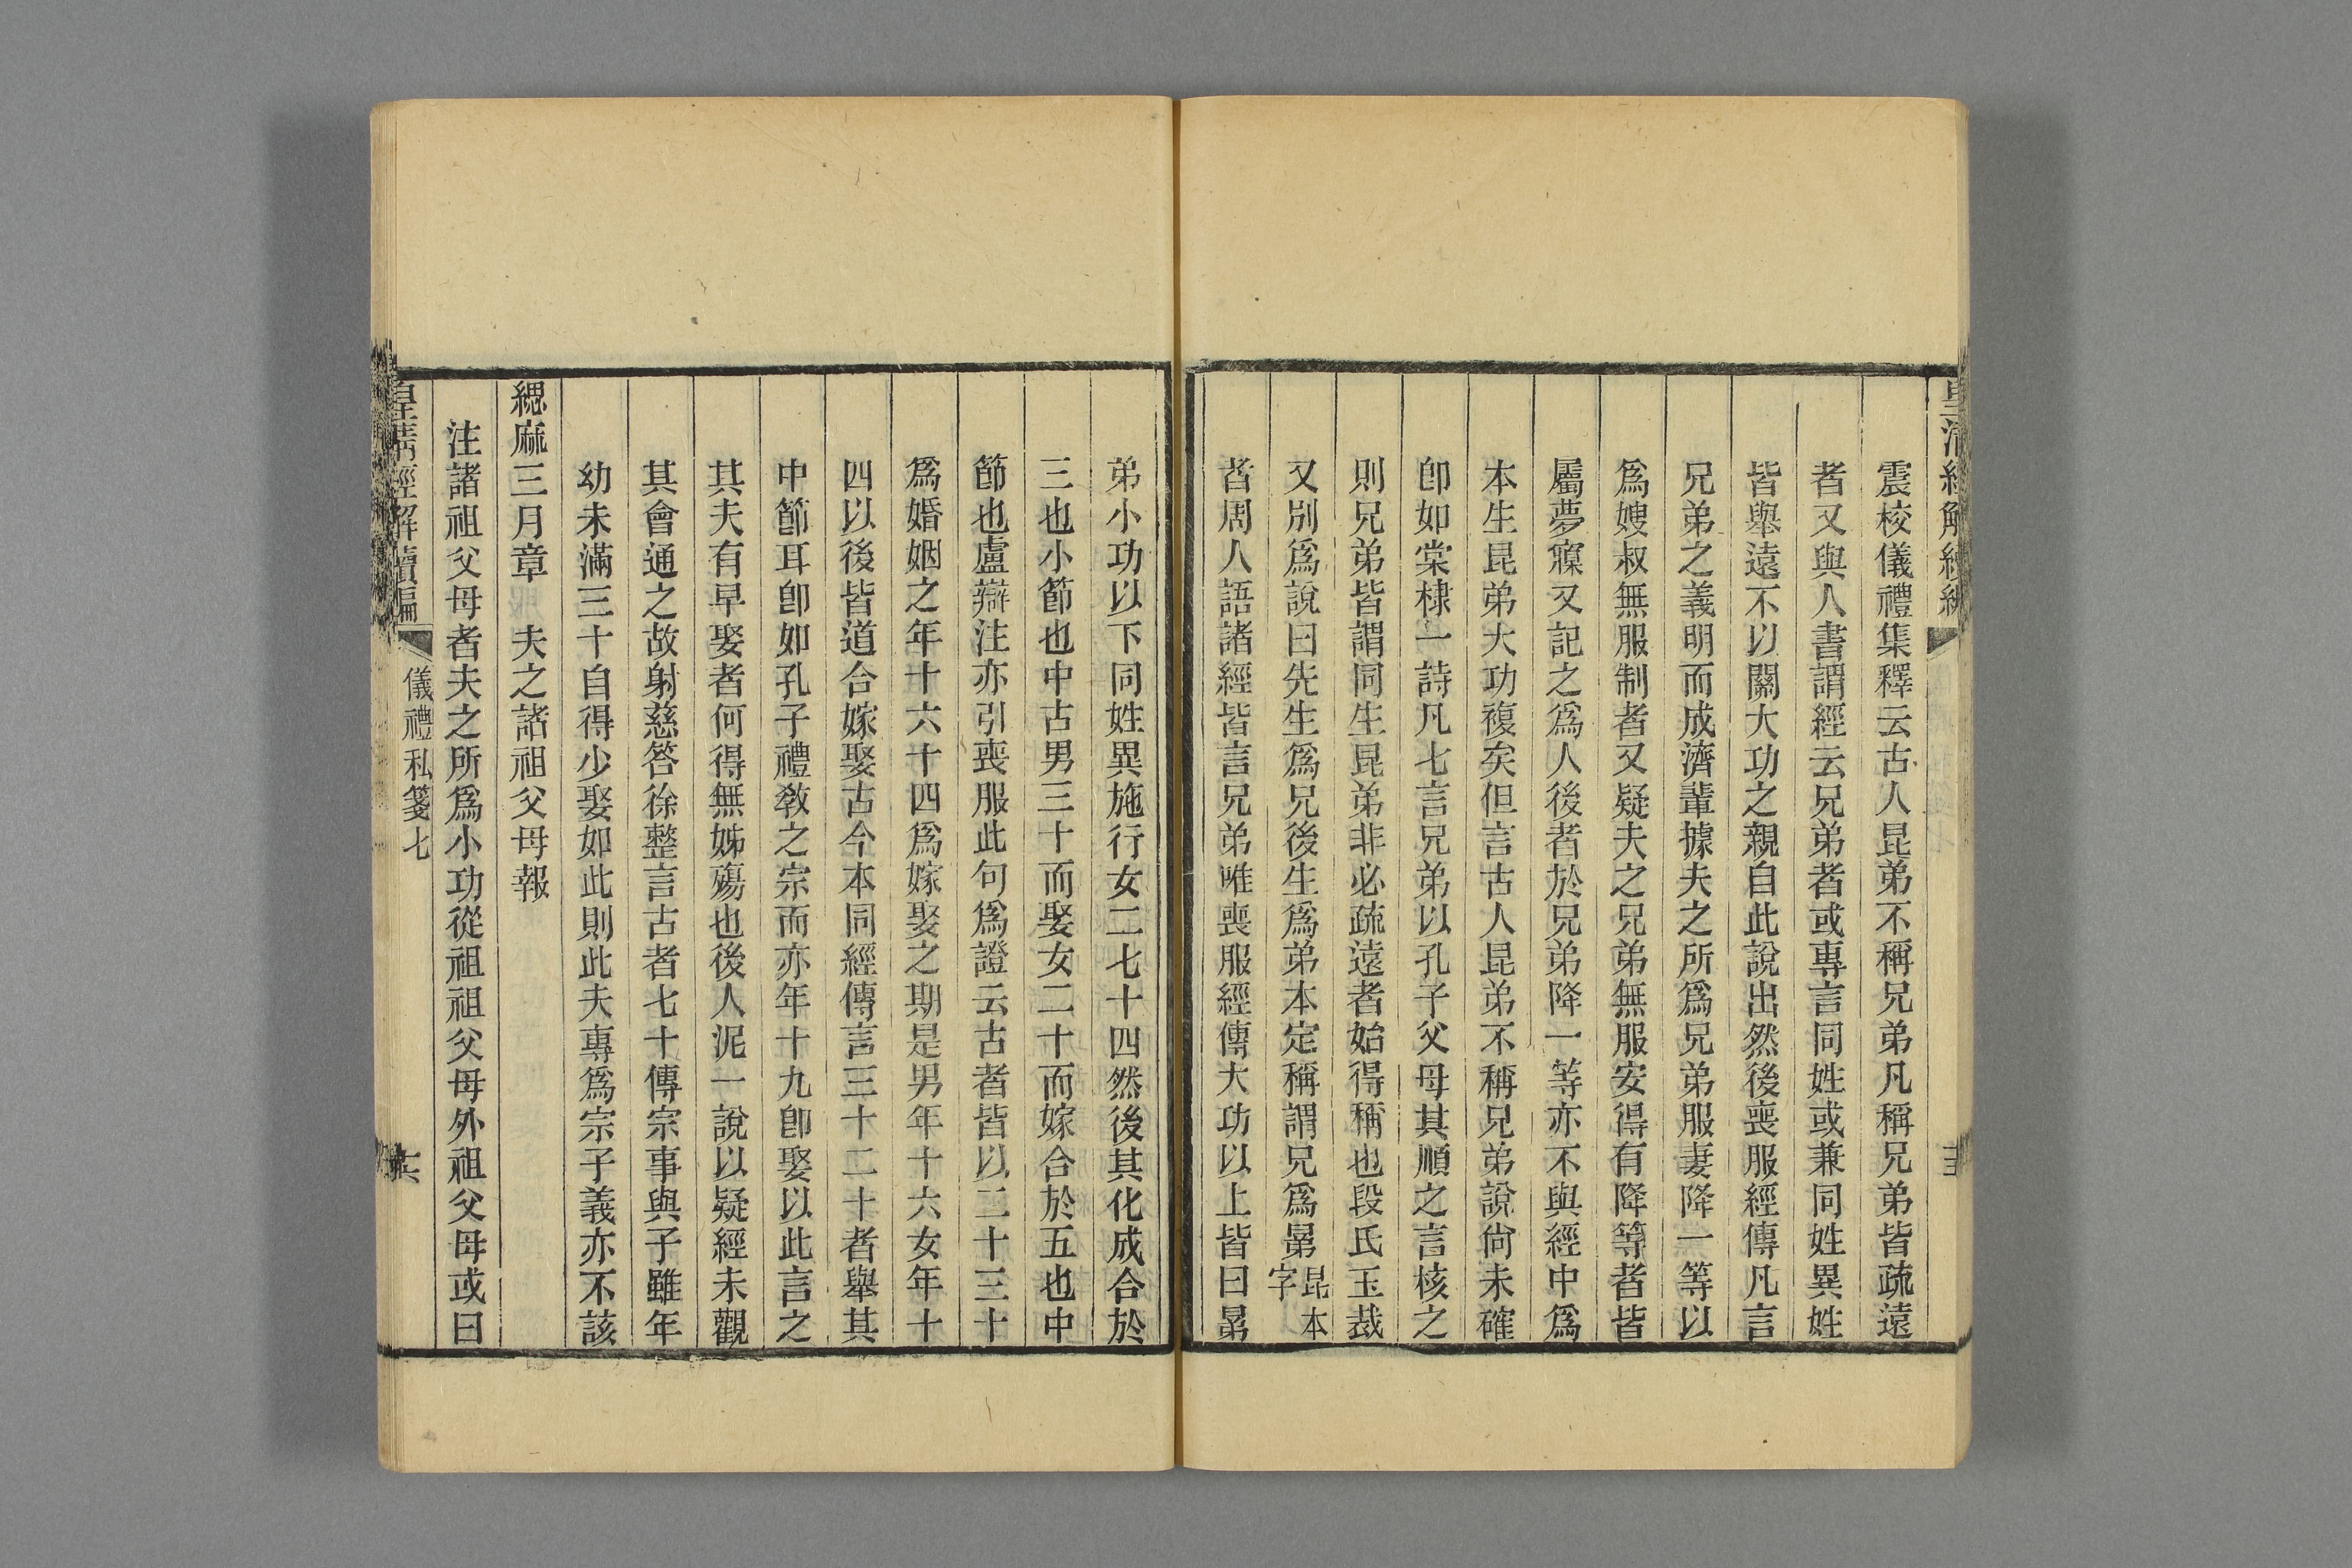 皇清經解續編
震校儀禮集釋云古人昆弟不稱兄弟凡稱兄弟皆疏遠
者又與人書謂經云兄弟者或專言同姓或兼同姓異姓
皆舉遠不以關大功之親自此說出然後喪服經傳凡言
兄弟之義明而成濟輩據夫之所爲兄弟服妻降一等以
爲嫂叔無服制者又疑夫之兄弟無服安得有降等者皆
屬夢寱又記之爲人後者於兄弟降一等亦不與經中爲
本生昆弟大功複矣但言古人昆弟不稱兄弟說尙未確
卽如棠棣一詩凡七言兄弟以孔子父母其順之言核之
則兄弟皆謂同生昆弟非必疏遠者始得稱也段氏玉裁
又別爲說曰先生爲兄後生爲弟本定稱謂兄爲晜昆本字
者周人語諸經皆言兄弟唯喪服經傳大功以上皆曰晜
弟小功以下同姓異施行女二七十四然後其化成合於
三也小節也中古男三十而娶女二十而嫁合於五也中
節也盧辯注亦引喪服此句爲證云古者皆以二十三十
爲婚姻之年十六十四爲嫁娶之期是男年十六女年十
四以後皆道合嫁娶古今本同經傳言三十二十者舉其
中節耳卽如孔子禮敎之宗而亦年十九卽娶以此言之
其夫有早娶者何得無姊殤也後人泥一說以疑經未觀
其會通之故射慈答徐整言古者七十傳宗事與子雖年
幼未滿三十自得少娶如此則此夫專爲宗子義亦不該
緦麻三月章 夫之諸祖父母報
注諸祖父母者夫之所爲小功從祖祖父母外祖父母或曰
皇淸經解續編 儀禮私箋七